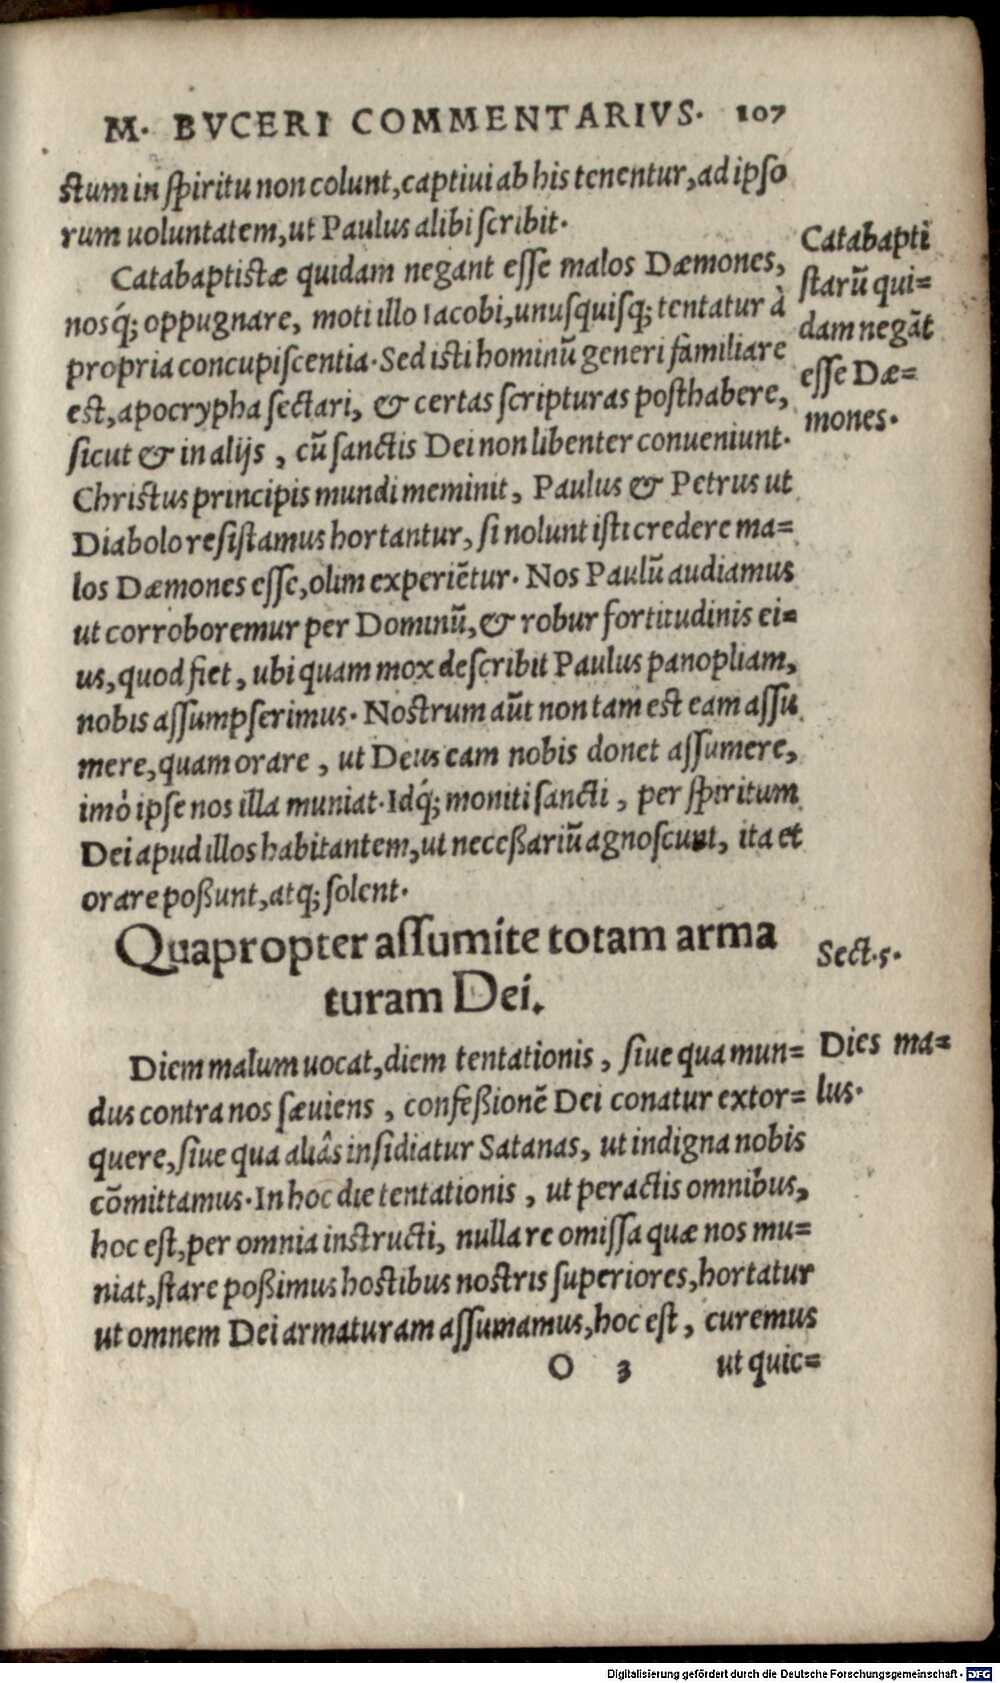 M. BVCERI COMMENTARIVS. 107
stum in spiritu non colunt, captiui ab his tenentur, ad ipso
rum uoluntatem, ut Paulus alibi scribit.
Catabaptistæ quidam negant esse malos Dæmones,
nosq́; oppugnare, moti illo Iacobi, unusquisq; tentatur à
propria concupiscentia. Sed isti hominũ generi familiare
est, apocrypha sectari, & certas scripturas posthabere,
sicut & in alijs, cũ sanctis Dei non libenter conueniunt.
Christus principis mundi meminit, Paulus & Petrus ut
Diabolo resistamus hortantur, si nolunt isti credere ma=
los Dæmones esse, olim experiẽtur. Nos Paulũ audiamus
ut corroboremur per Dominũ, & robur fortitudinis ei=
us, quod fiet, ubi quam mox describit Paulus panopliam,
nobis assumpserimus. Nostrum aũt non tam est eam assu
mere, quam orare, ut Deus eam nobis donet assumere,
imò ipse nos illa muniat. Idq́; moniti sancti, per spiritum
Dei apud illos habitantem, ut neceßariũ agnoscunt, ita et
orare poßunt, atq; solent.
Catabapti
starũ qui=
dam negãt
esse Dæ=
mones.
Quapropter assumite totam arma
turam Dei.
Sect. 5.
Diem malum uocat, diem tentationis, siue qua mun=
dus contra nos sæuiens, confeßionẽ Dei conatur extor=
quere, siue qua aliâs insidiatur Satanas, ut indigna nobis
cõmittamus. In hoc die tentationis, ut peractis omnibus,
hoc est, per omnia instructi, nulla re omissa quæ nos mu=
niat, stare poßimus hostibus nostris superiores, hortatur
ut omnem Dei armaturam assumamus, hoc est, curemus
Dies ma=
lus.
O 3 ut quic=
Digitalisierung gefördert durch die Deutsche Forschungsgemeinschaft - DFG